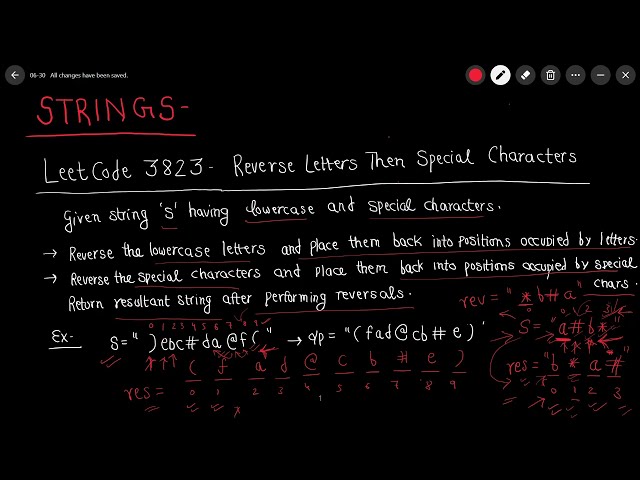 06-30 All changes have been saved.
STRINGS-
LeetCode 3823- Reverse Letters Then Special Characters
Given string 's' having lowercase and special characters.
→ Reverse the lowercase letters and place them back into positions occupied by letters.
→ Reverse the special characters and place them back into positions occupied by special chars.
Return resultant string after performing reversals.
rev = "*b#a"
0 1 2 3
S = "a#b*"
0 1 2 3 4 5 6 7 8 9
Ex- S = ")ebc#da@f(" → o/p = "(fad@cb#e)"
res = "b*a#"
0 1 2 3
res = ( f a d @ c b # e )
0 1 2 3 4 5 6 7 8 9